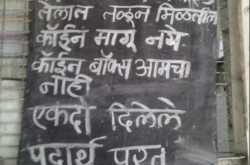 तेलात तळून मिळतील
कॉईन मागू नये
कॉईन बॉक्स आमचा
नाही
एकदा दिलेले
पदार्थ परत